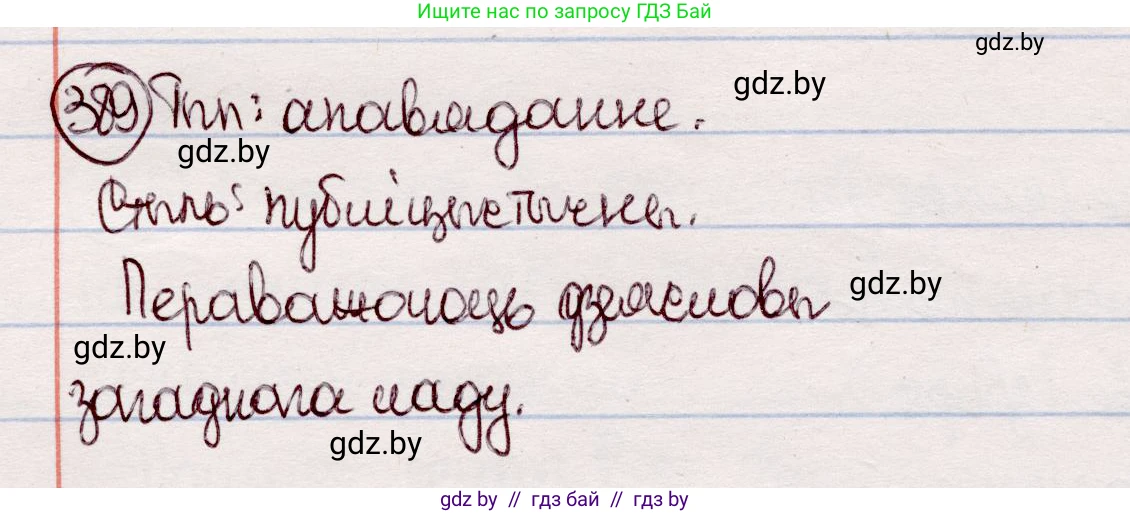 Ищите нас по запросу ГДЗ Бай
gdz.by
389 Тып: апавяданне.
gdz.by
gdz.by
Стыль: публіцыстычны.
Пераважаюць дзеясловы
gdz.by
gdz.by
загаднага ладу.
gdz.by
gdz by // гдз бай // гдз by